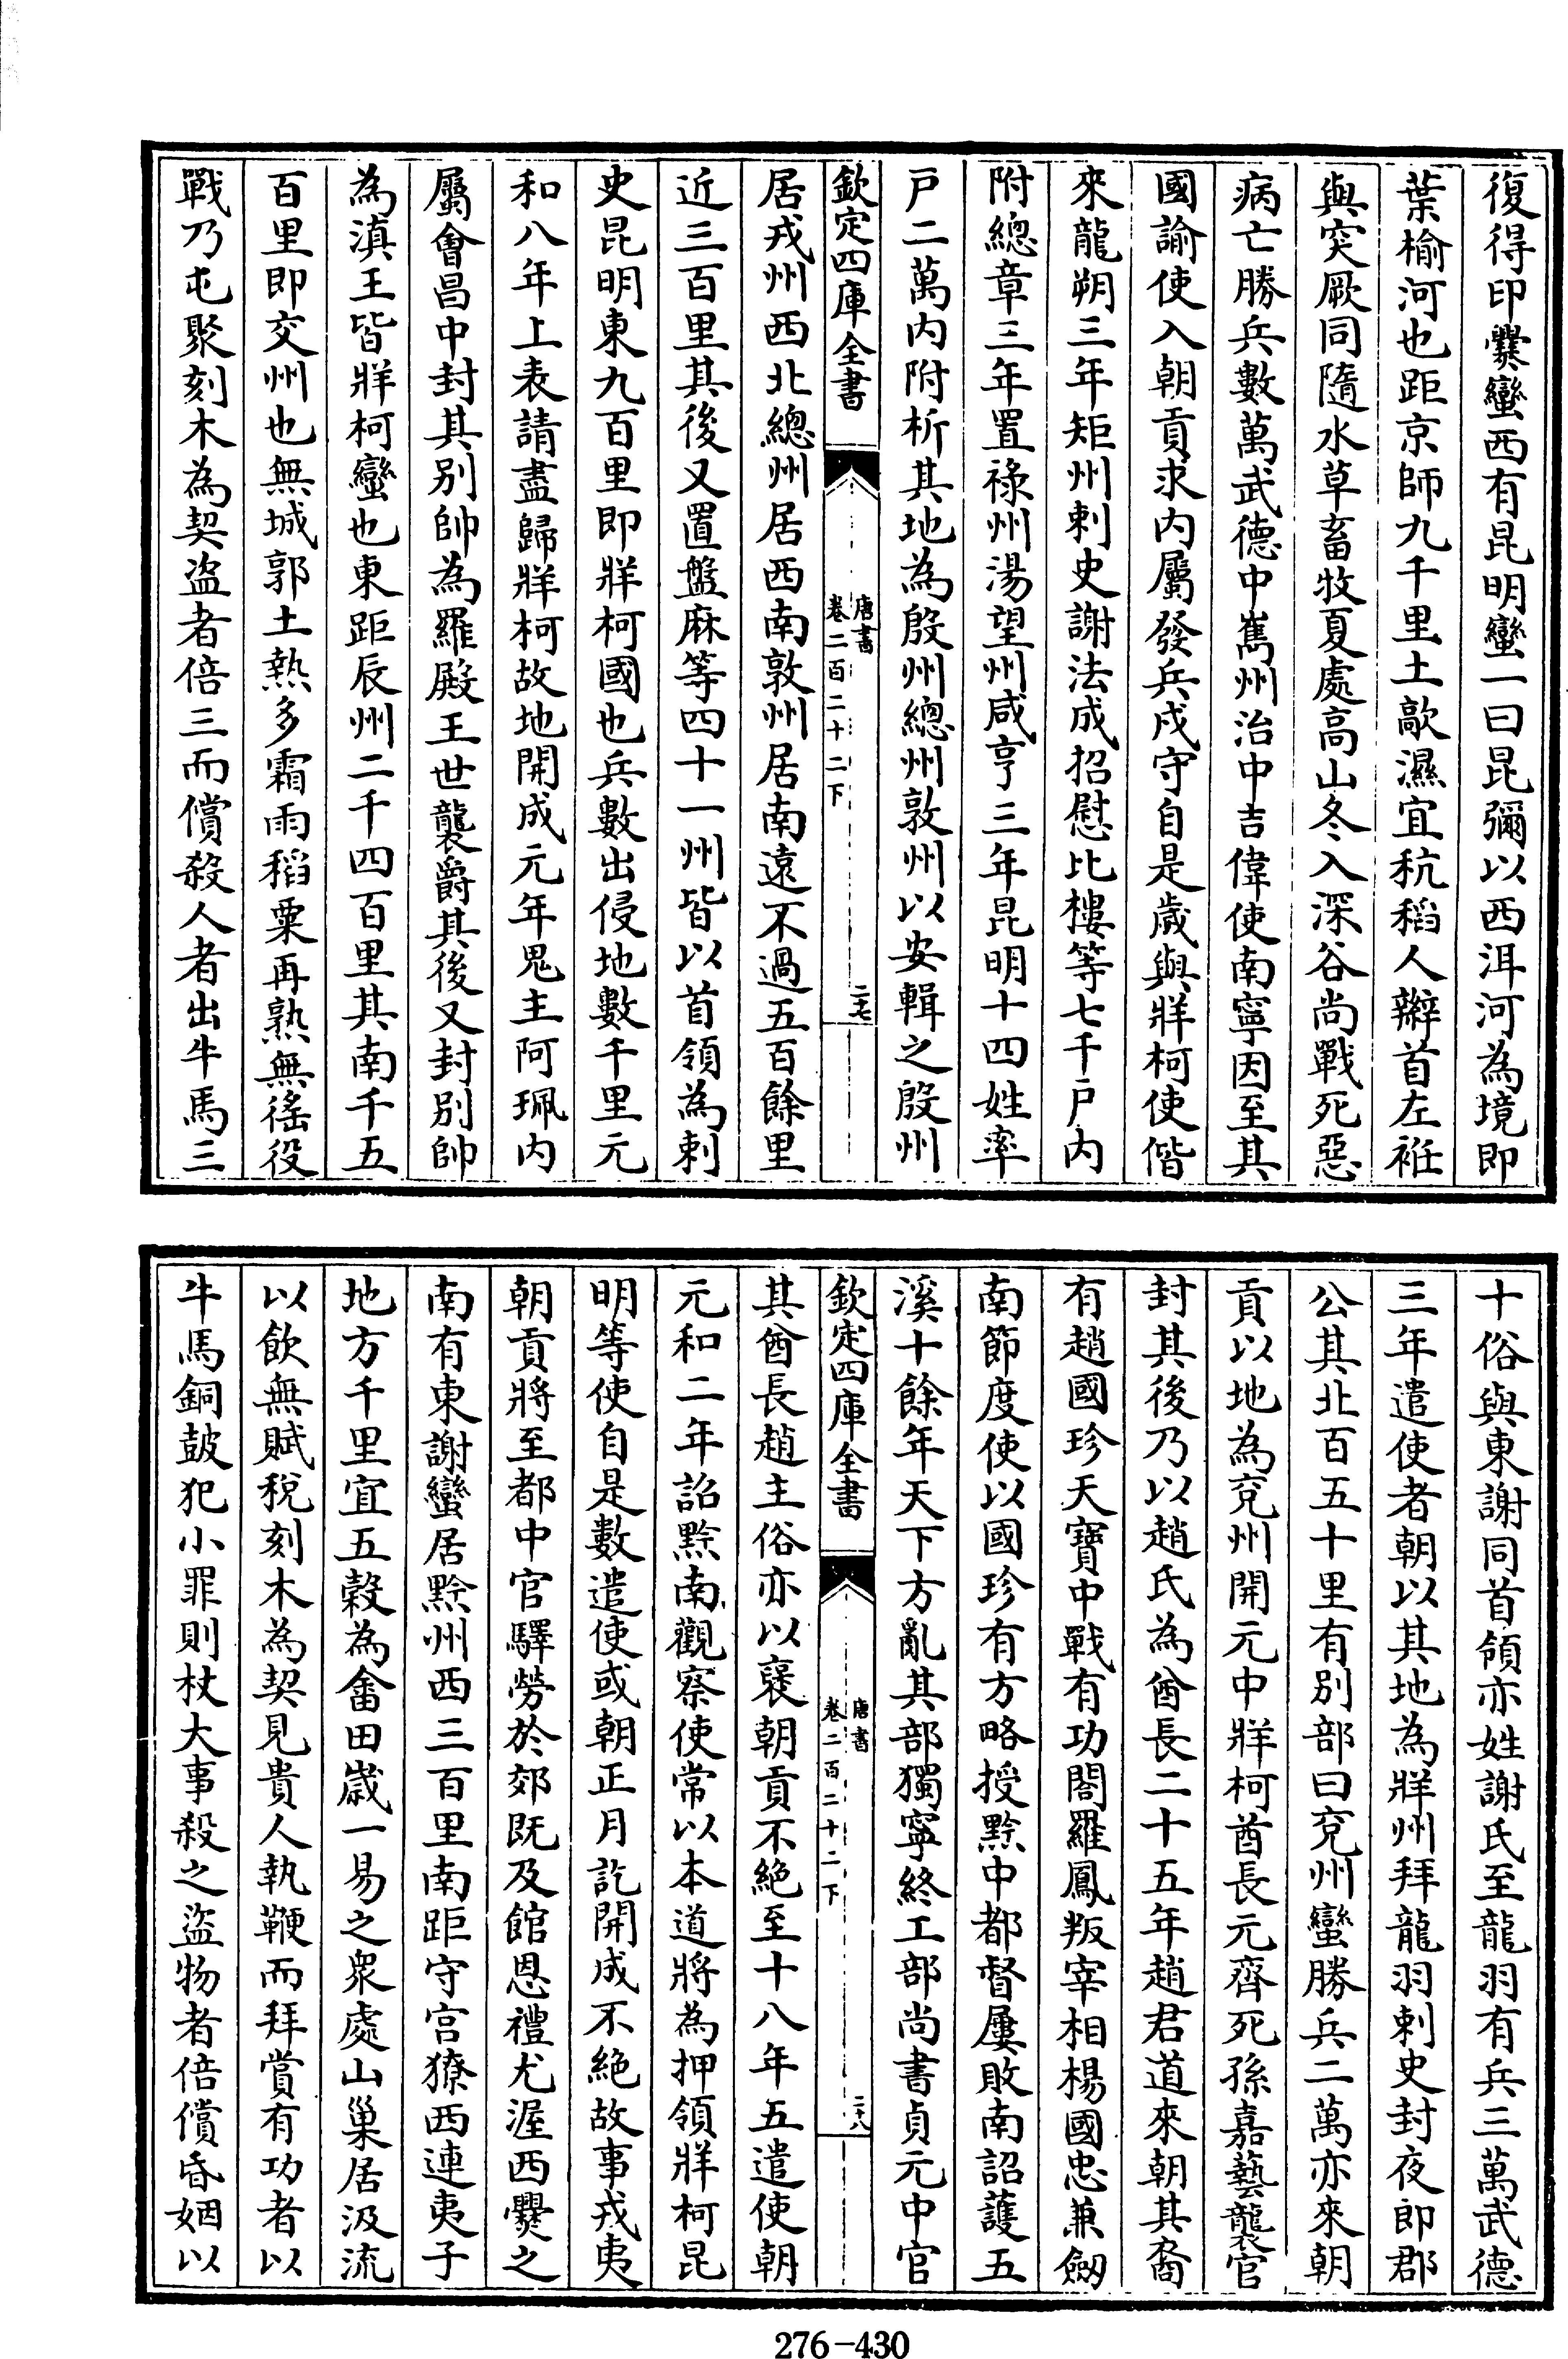 復得印爨蠻西有昆明蠻一曰昆彌以西洱河為境即
葉榆河也距京師九千里土歊濕宜秔稻人辮首左衽
與突厥同隨水草畜牧夏處高山冬入深谷尚戰死惡
病亡勝兵數萬武德中巂州治中吉偉使南寧因至其
國諭使入朝貢求内屬發兵戍守自是歲與牂柯使偕
來龍朔三年矩州刺史謝法成招慰比樓等七千戸内
附總章三年置祿州湯望州咸亨三年昆明十四姓率
戸二萬内附析其地為殷州總州敦州以安輯之殷州
欽定四庫全書
唐書
卷二百二十二下
二十七
居戎州西北總州居西南敦州居南遠不過五百餘里
近三百里其後又置盤麻等四十一州皆以首領為刺
史昆明東九百里即牂柯國也兵數出侵地數千里元
和八年上表請盡歸牂柯故地開成元年鬼主阿珮内
屬會昌中封其别帥為羅殿王世襲爵其後又封别帥
為滇王皆牂柯蠻也東距辰州二千四百里其南千五
百里即交州也無城郭土熱多霜雨稻粟再熟無徭役
戰乃屯聚刻木為契盗者倍三而償殺人者出牛馬三
十俗與東謝同首領亦姓謝氏至龍羽有兵三萬武德
三年遣使者朝以其地為牂州拜龍羽刺史封夜郎郡
公其北百五十里有别部曰兖州蠻勝兵二萬亦來朝
貢以地為兖州開元中牂柯酋長元齊死孫嘉藝襲官
封其後乃以趙氏為酋長二十五年趙君道來朝其裔
有趙國珍天寶中戰有功閤羅鳳叛宰相楊國忠兼劒
南節度使以國珍有方略授黔中都督屢敗南詔護五
溪十餘年天下方亂其部獨寧終工部尚書貞元中官
欽定四庫全書
唐書
卷二百二十二下
二十八
其酋長趙主俗亦以襃朝貢不絶至十八年五遣使朝
元和二年詔黔南觀察使常以本道將為押領牂柯昆
明等使自是數遣使或朝正月訖開成不絶故事戎夷
朝貢將至都中官驛勞於郊既及館恩禮尤渥西爨之
南有東謝蠻居黔州西三百里南距守宫獠西連夷子
地方千里宜五穀為畬田歲一易之衆處山巢居汲流
以飲無賦税刻木為契見貴人執鞭而拜賞有功者以
牛馬銅鼓犯小罪則杖大事殺之盜物者倍償昏姻以
276-430